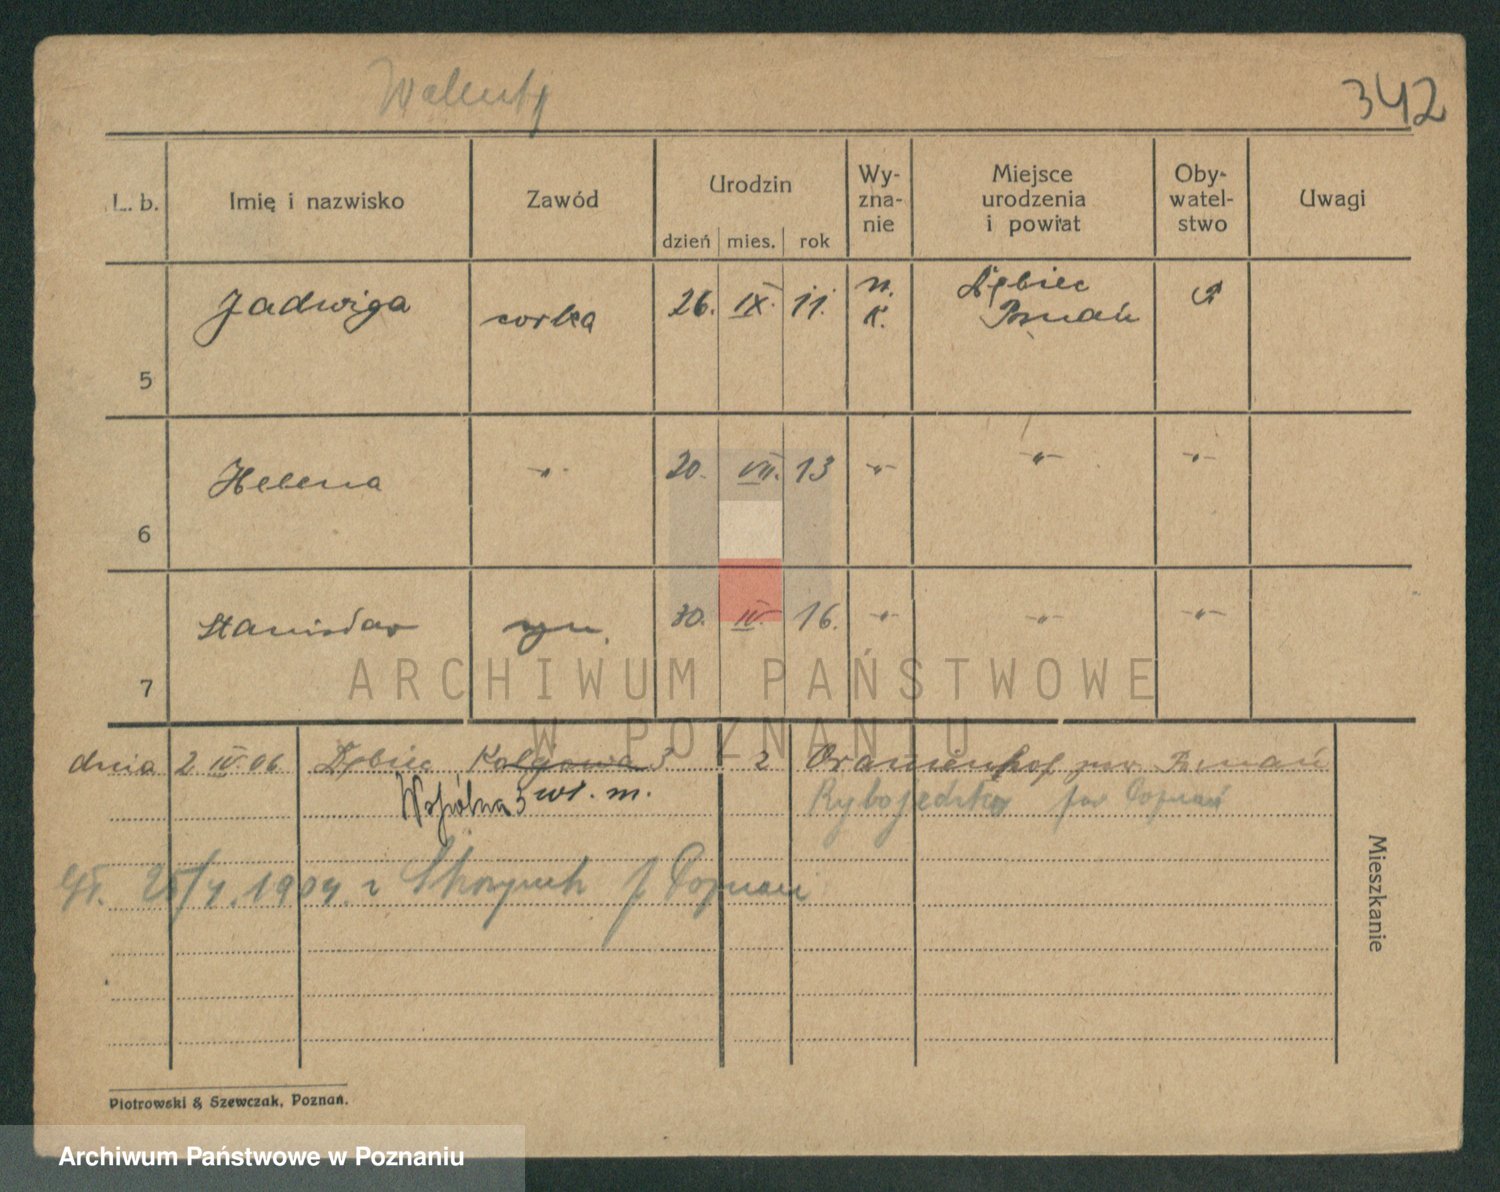 Walenty
342
L. b. Imię i nazwisko Zawód Urodzin dzień mies. rok Wy-zna-nie Miejsce urodzenia i powiat Oby-watel-stwo Uwagi
5 Jadwiga corka 26. IX. 11. K. Dębiec Poznań
6 Helena -"- 20. VII. 13 -"- -"- -"-
7 Stanisław syn. 30. IV. 16. -"- -"- -"-
ARCHIWUM PAŃSTWOWE
W POZNANIU
dnia 2 IV. 06 Dębiec 3 2 Oranienhof pow. Poznań
Wspólna 3 wł. m. pow Poznań
Poznań
Mieszkanie
Piotrowski & Szewczak, Poznań.
Archiwum Państwowe w Poznaniu